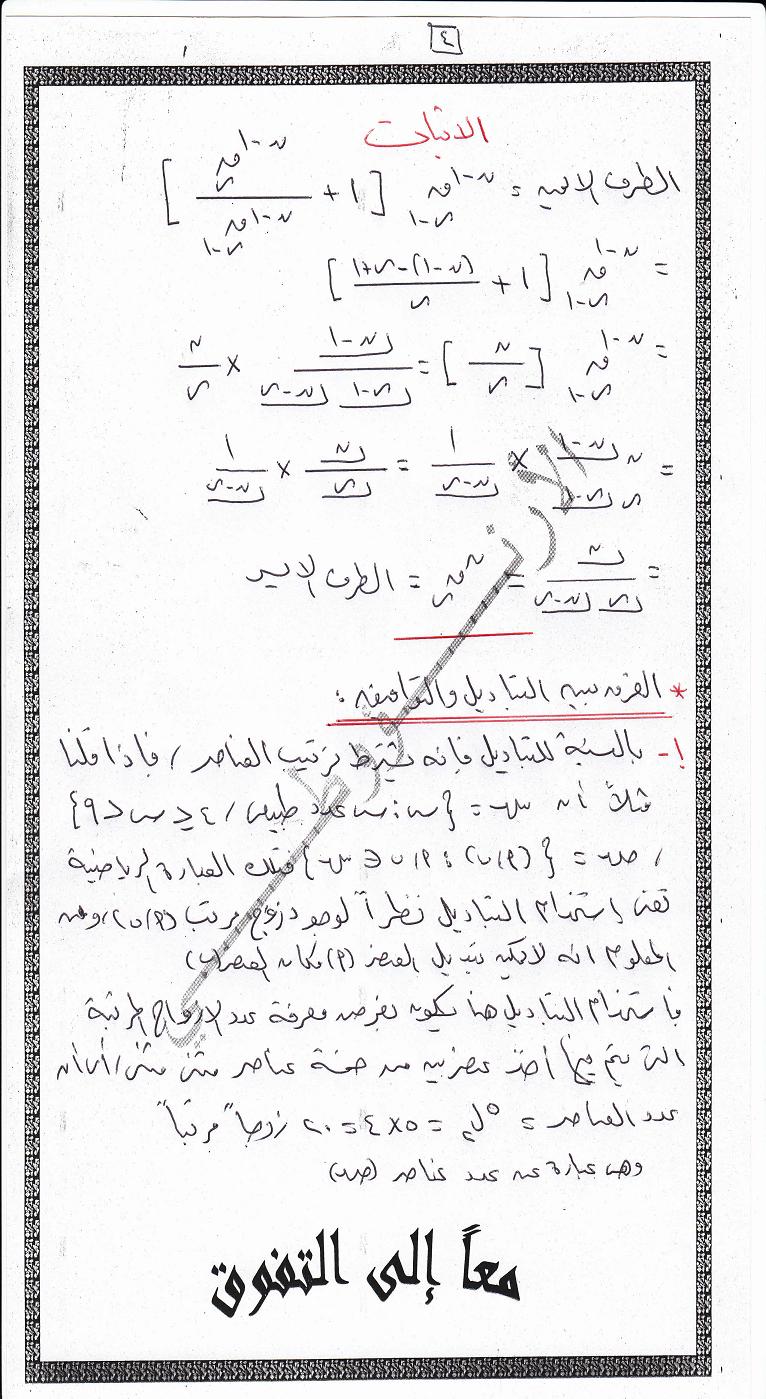 ٤
الاثبات
الطرف الايمن = ن-١ق ر-١ [ ١ + ن-١ق ر / ن-١ق ر-١ ]
= ن-١ق ر-١ [ ١ + (ن-١)-ر+١ / ر ]
= ن-١ق ر-١ [ ن / ر ] = ⌊ن-١ / ⌊ر-١ ⌊ن-ر × ن / ر
= ن ⌊ن-١ / ر ⌊ر-١ × ١ / ⌊ن-ر = ⌊ن / ⌊ر × ١ / ⌊ن-ر
= ⌊ن / ⌊ر ⌊ن-ر = نق ر = الطرف الايسر
* الفرق بين التباديل والتوافيق :
١- بالنسبة للتباديل فإنه يشترط ترتيب العناصر / فإذا قلنا
مثلاً أن سـ = { س : س عدد طبيعي / ٤ ≤ س < ٩ }
/ صـ = { (٩/ب) : ٩/ب ∋ سـ } فتلك العبارة الرياضية
تعني استخدام التباديل نظراً لوجود زوج مرتب (٩/ب) ومن
المعلوم انه لايمكن تبديل العنصر (٩) مكان العنصر (ب)
فاستخدام التباديل هنا يكون بغرض معرفة عدد الازواج المرتبة
التي يتم فيها أخذ عنصرين من خمسة عناصر مثنى مثنى / أي أن
عدد العناصر = ٥ل٢ = ٥×٤ = ٢٠ زوجاً مرتباً
وهي عبارة عن عدد عناصر (صـ)
معاً إلى التفوق